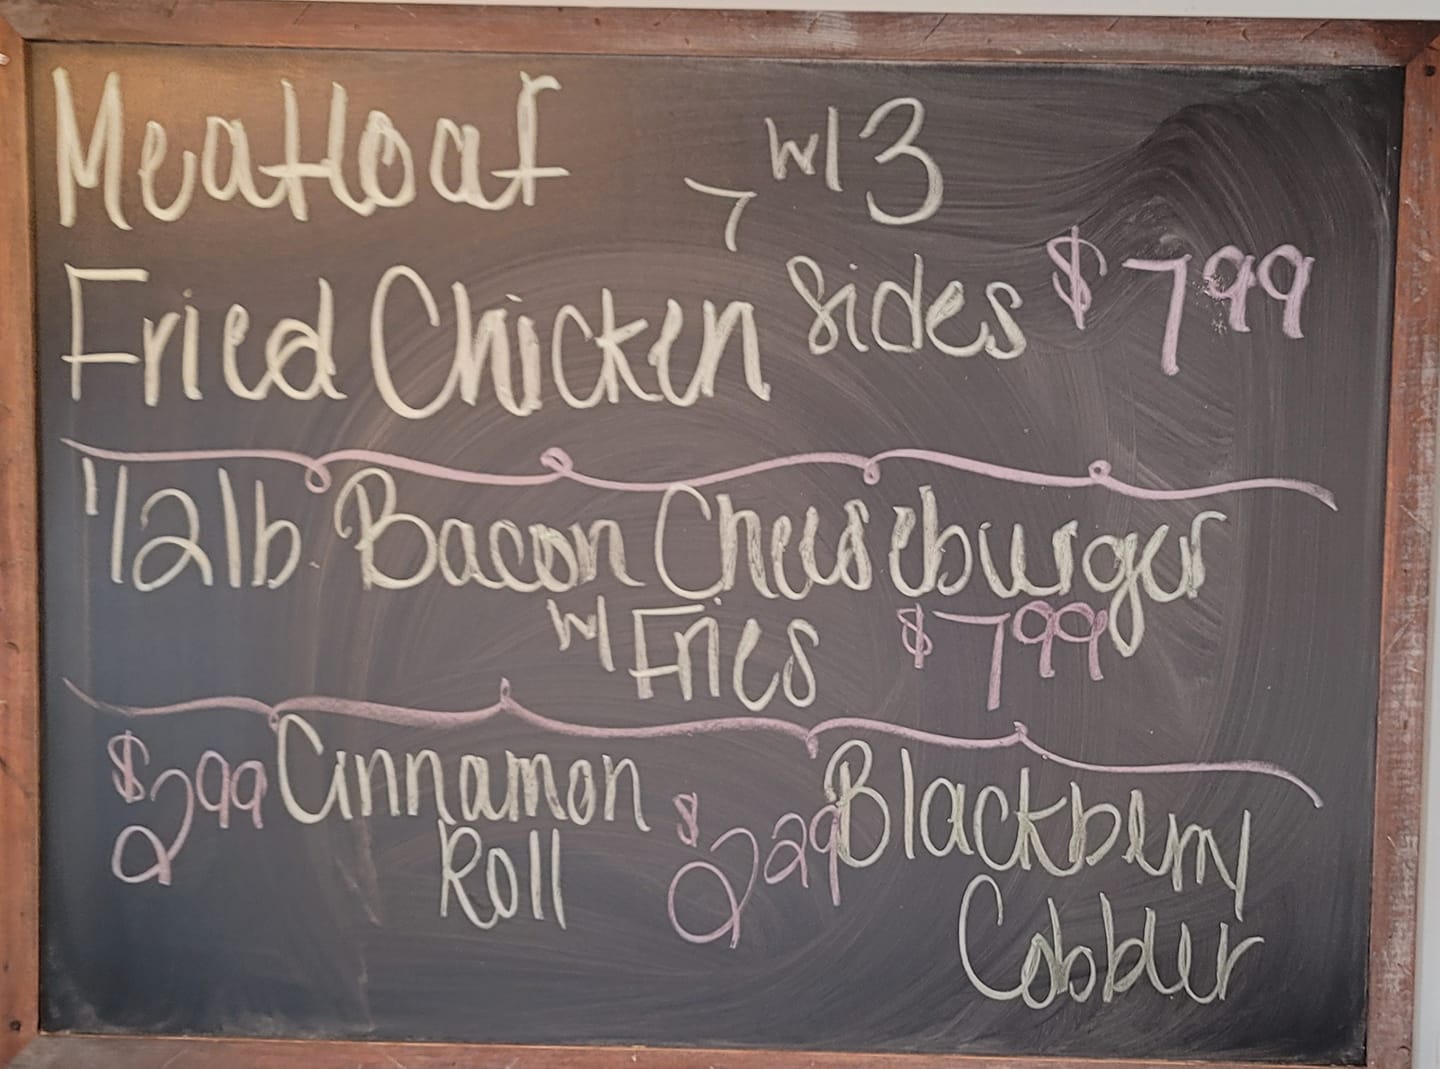 Meatloaf
Fried Chicken
w/ 3
sides $7.99
1/2 lb Bacon Cheeseburger
w/ Fries $7.99
$2.99 Cinnamon
Roll
$2.29 Blackberry
Cobbler